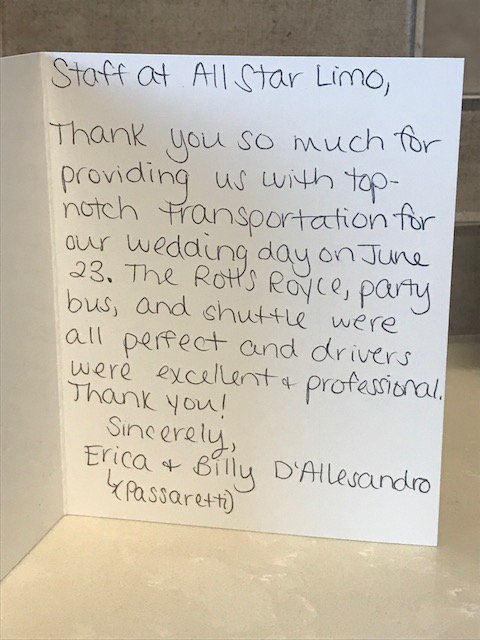 Staff at All Star Limo,
Thank you so much for
providing us with top-
notch transportation for
our wedding day on June
23. The Rolls Royce, party
bus, and shuttle were
all perfect and drivers
were excellent + professional.
Thank you!
Sincerely,
Erica + Billy D'Allesandro
↳(Passaretti)